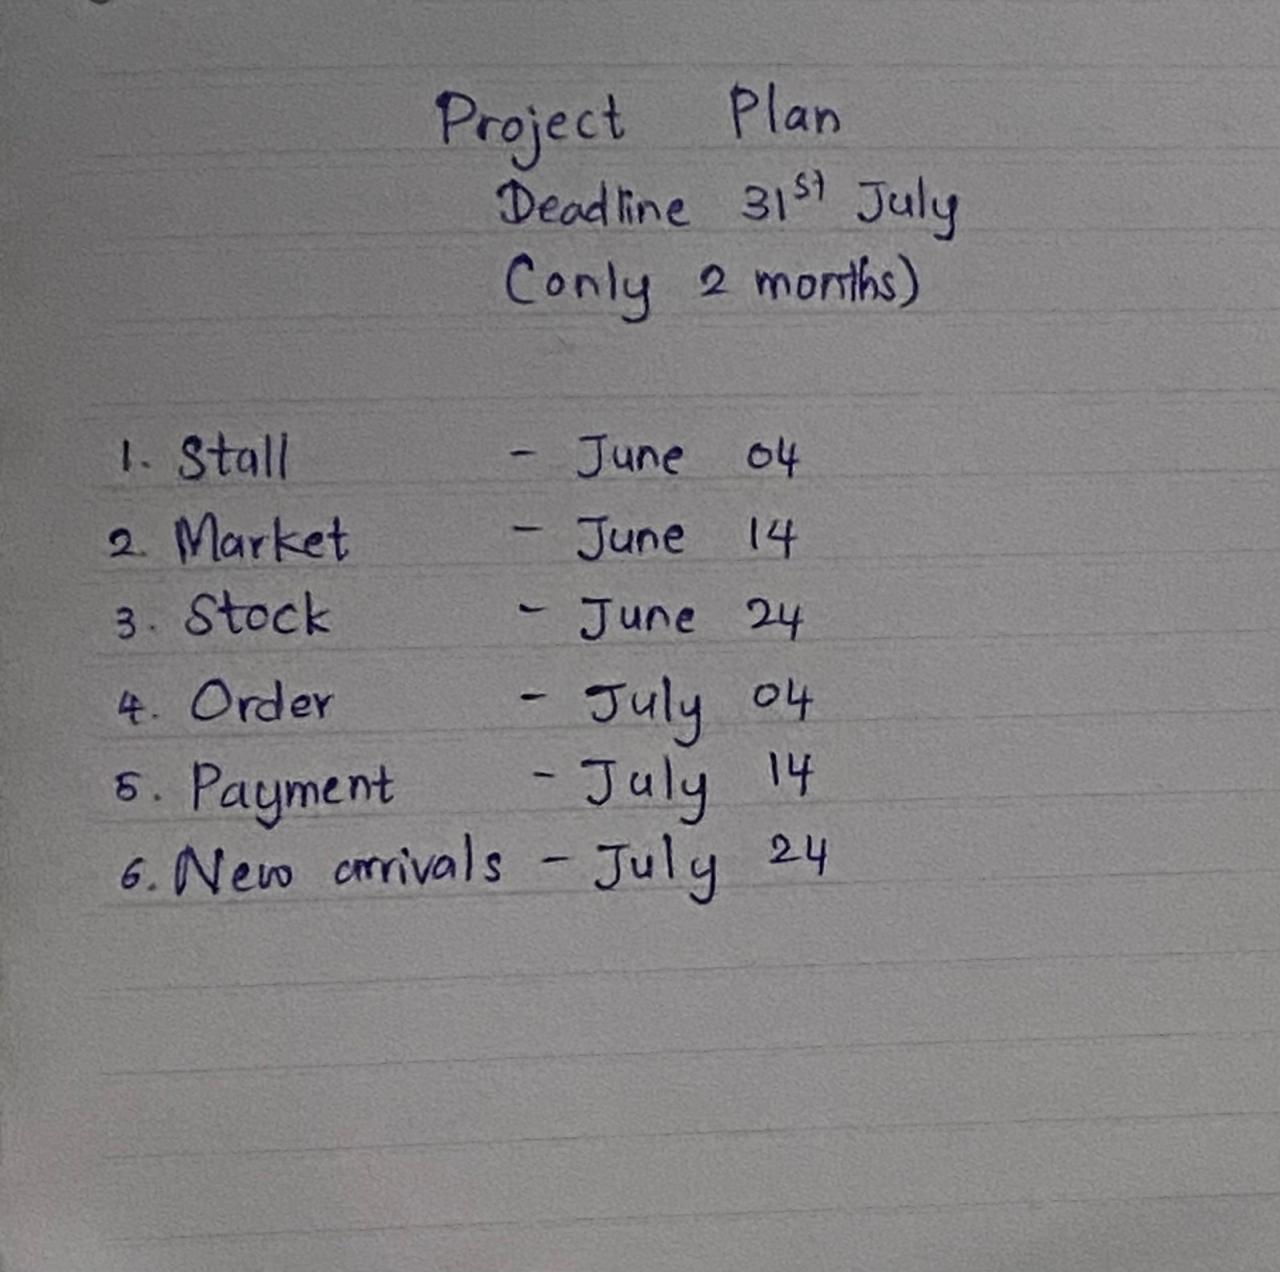 Project Plan
Deadline 31st July
(only 2 months)
1. Stall - June 04
2. Market - June 14
3. Stock - June 24
4. Order - July 04
5. Payment - July 14
6. New arrivals - July 24